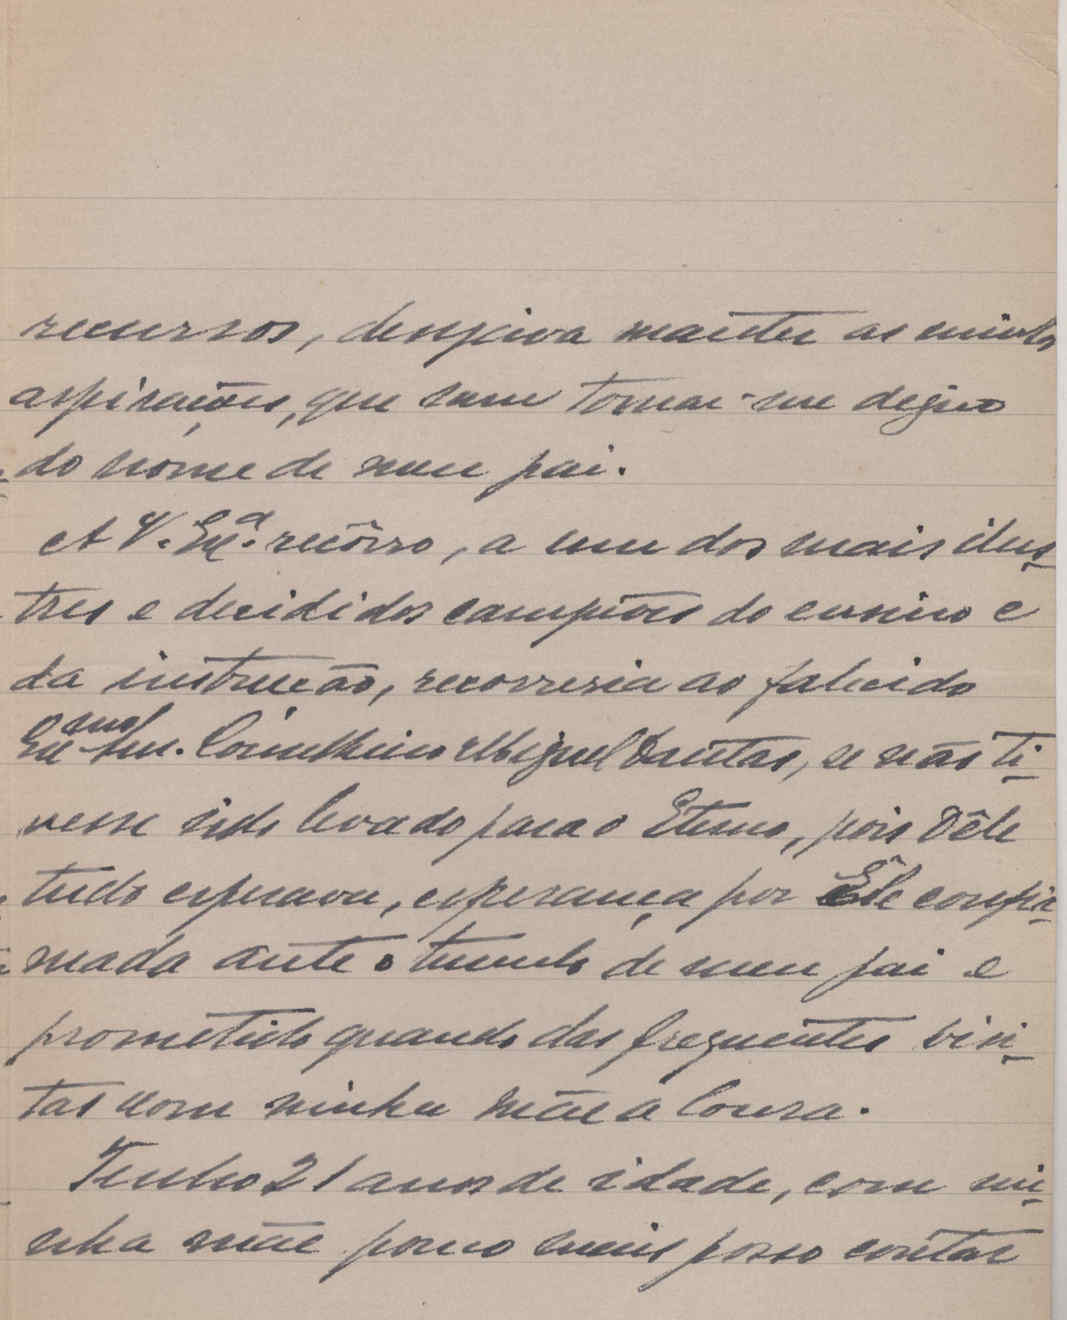 recursos, desejava manter as minhas
aspirações, que eram tornar-me digno
do nome de meu pai.
A V. Exª. recôrro, a um dos mais ilus-
tres e decididos campiões do ensino e
da instrução, recorreria ao falecido
Exmo Snr. Miguel Dantas, se não ti-
vesse sido levado para o Eterno, pois Dêle
tudo esperava, esperança por Êle confir-
mada ante o tumulo de meu pai e
prometido quando das frequentes visi-
tas com minha mãe a Coura.
Tenho 21 anos de idade, com mi-
nha mãe pouco mais posso contar